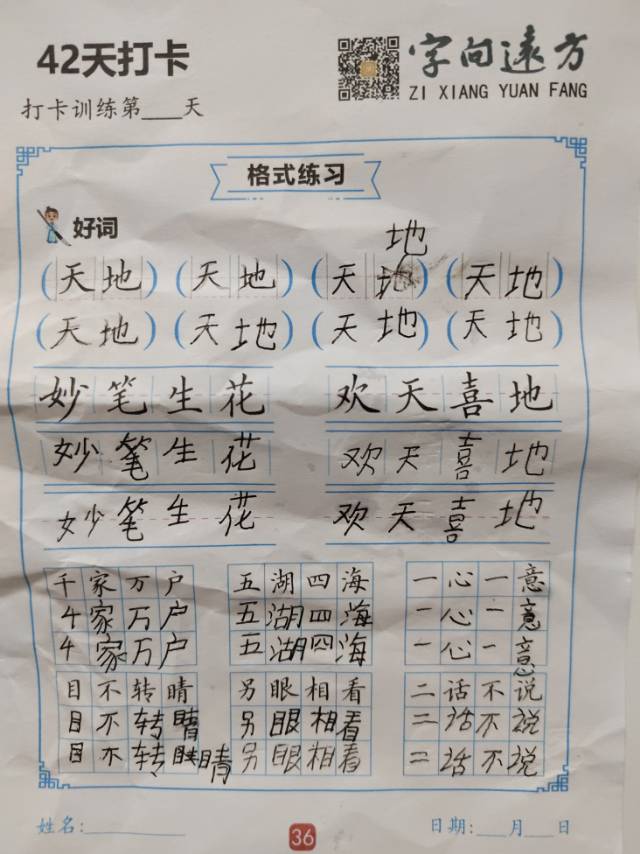 42天打卡
字向远方
ZI XIANG YUAN FANG
打卡训练第___天
格式练习
好词
(天地) (天地) (天地) 地 (天地)
(天地) (天地) (天地) (天地)
妙笔生花 欢天喜地
妙笔生花 欢天喜地
妙笔生花 欢天喜地
千家万户 五湖四海 一心一意
千家万户 五湖四海 一心一意
千家万户 五湖四海 一心一意
目不转睛 另眼相看 二话不说
目不转睛 另眼相看 二话不说
目不转睛 另眼相看 二话不说
姓名:________ 36 日期:___月___日